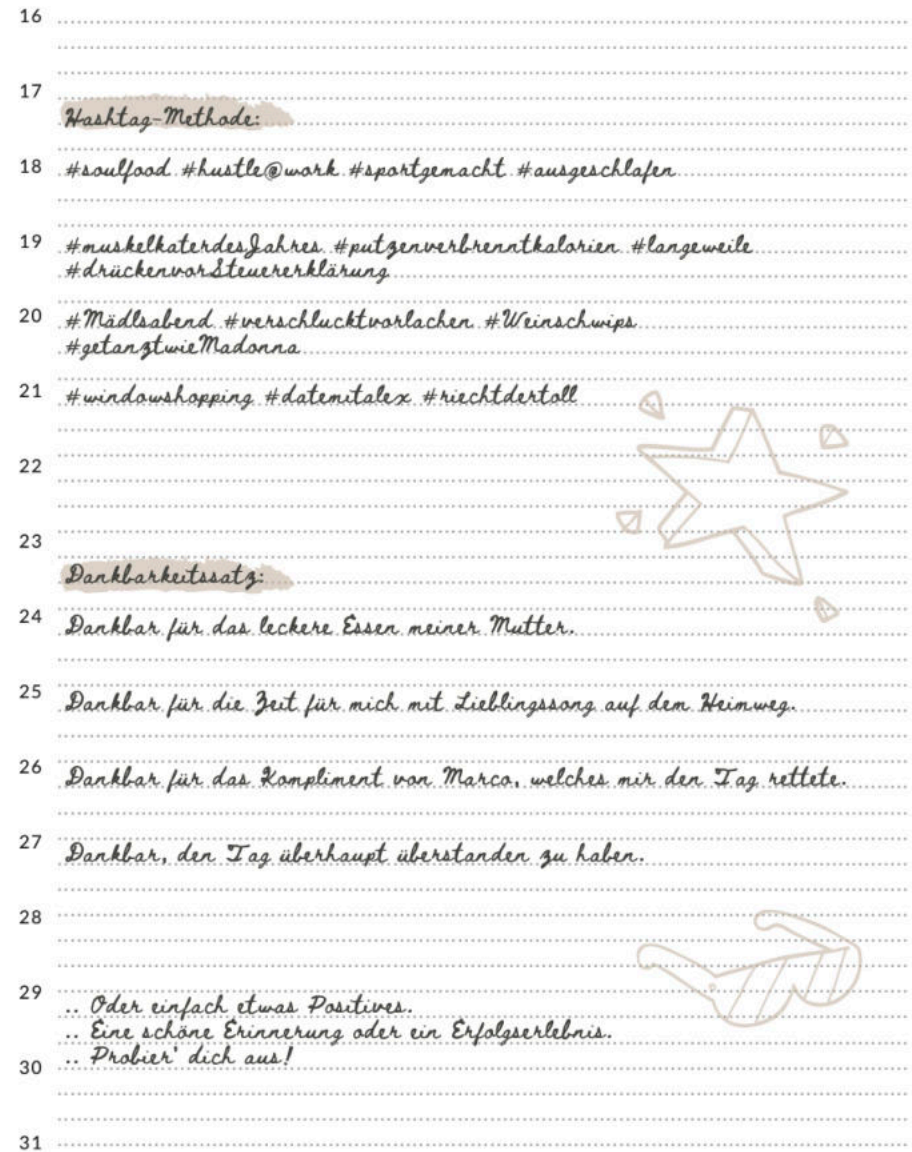 16
17
Hashtag-Methode:
18 #soulfood #hustle@work #sportgemacht #ausgeschlafen
19 #muskelkaterdesJahres #putzenverbrenntkalorien #langeweile
#drückenvorSteuererklärung
20 #Mädlsabend #verschlucktvorlachen #Weinschwips
#getanztwieMadonna
21 #windowshopping #datemitalex #riechtdertoll
22
23
Dankbarkeitssatz:
24 Dankbar für das leckere Essen meiner Mutter.
25 Dankbar für die Zeit für mich mit Lieblingssong auf dem Heimweg.
26 Dankbar für das Kompliment von Marco, welches mir den Tag rettete.
27 Dankbar, den Tag überhaupt überstanden zu haben.
28
29 .. Oder einfach etwas Positives.
.. Eine schöne Erinnerung oder ein Erfolgserlebnis.
30 .. Probier' dich aus!
31